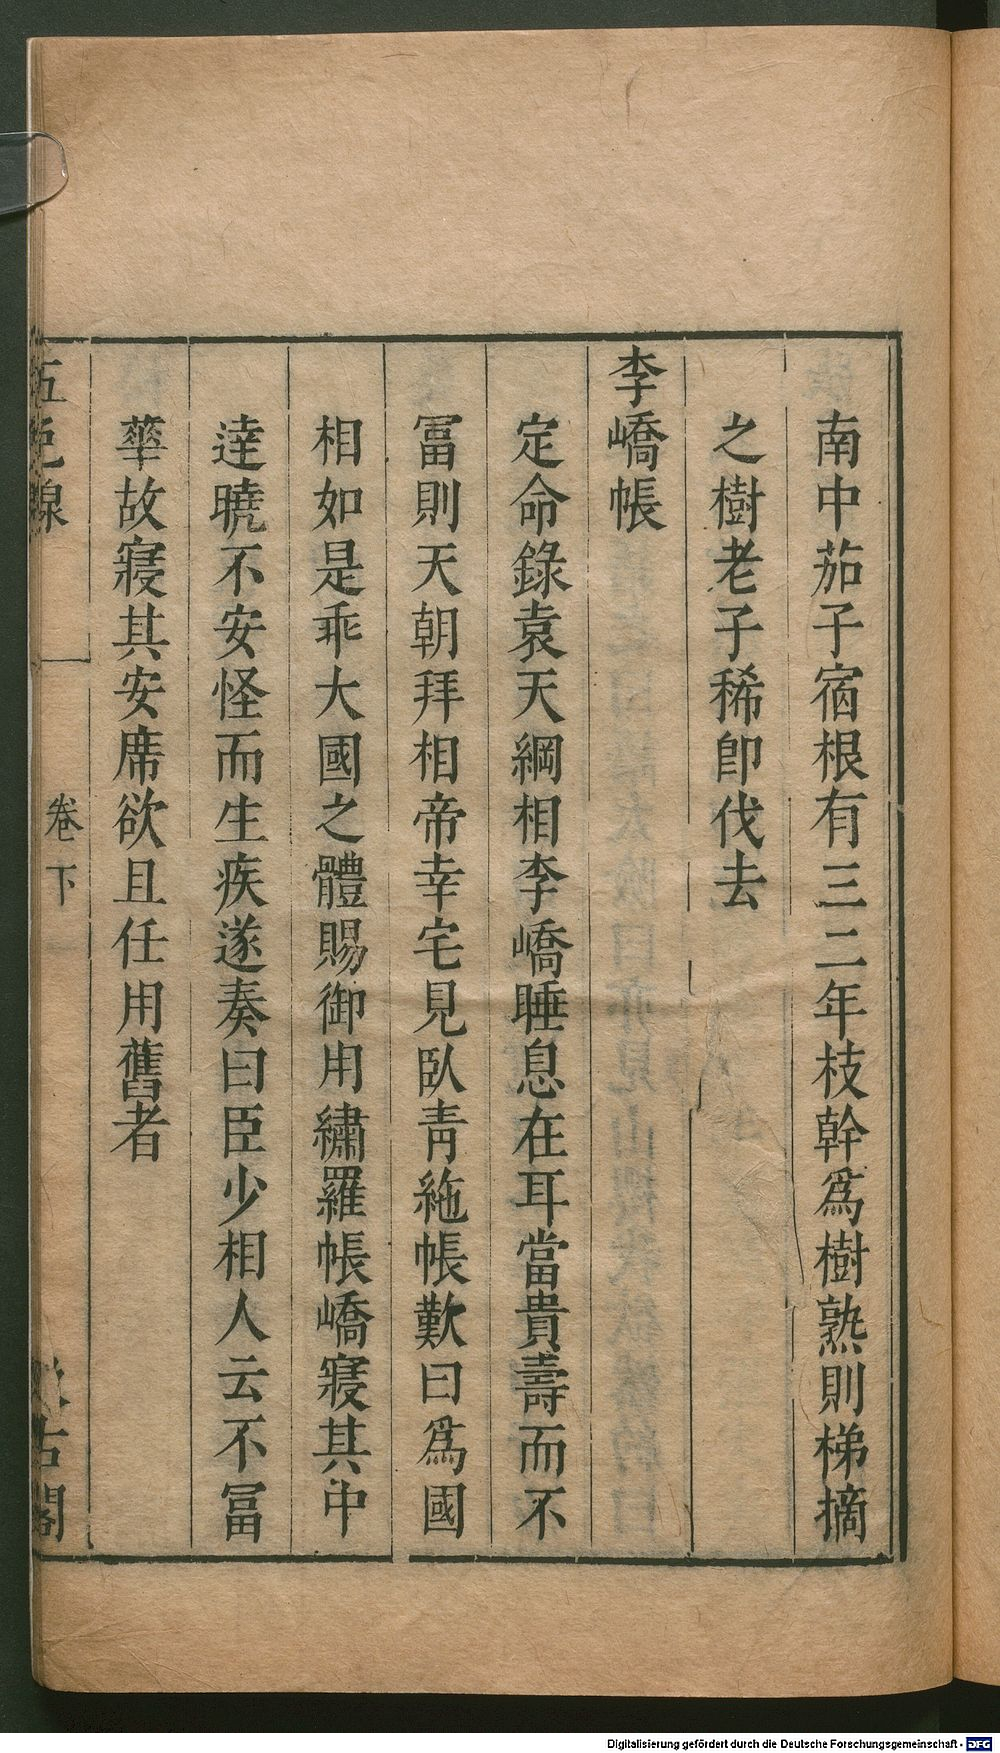 南中茄子宿根有三二年枝幹爲樹熟則梯摘
之樹老子稀卽伐去
李嶠帳
定命錄袁天綱相李嶠睡息在耳當貴壽而不
冨則天朝拜相帝幸宅見臥青絁帳歎曰爲國
相如是乖大國之體賜御用繡羅帳嶠寢其中
逹曉不安怪而生疾遂奏曰臣少相人云不冨
華故寢其安席欲且任用舊者
五色線
卷下
古閣
Digitalisierung gefördert durch die Deutsche Forschungsgemeinschaft - DFG